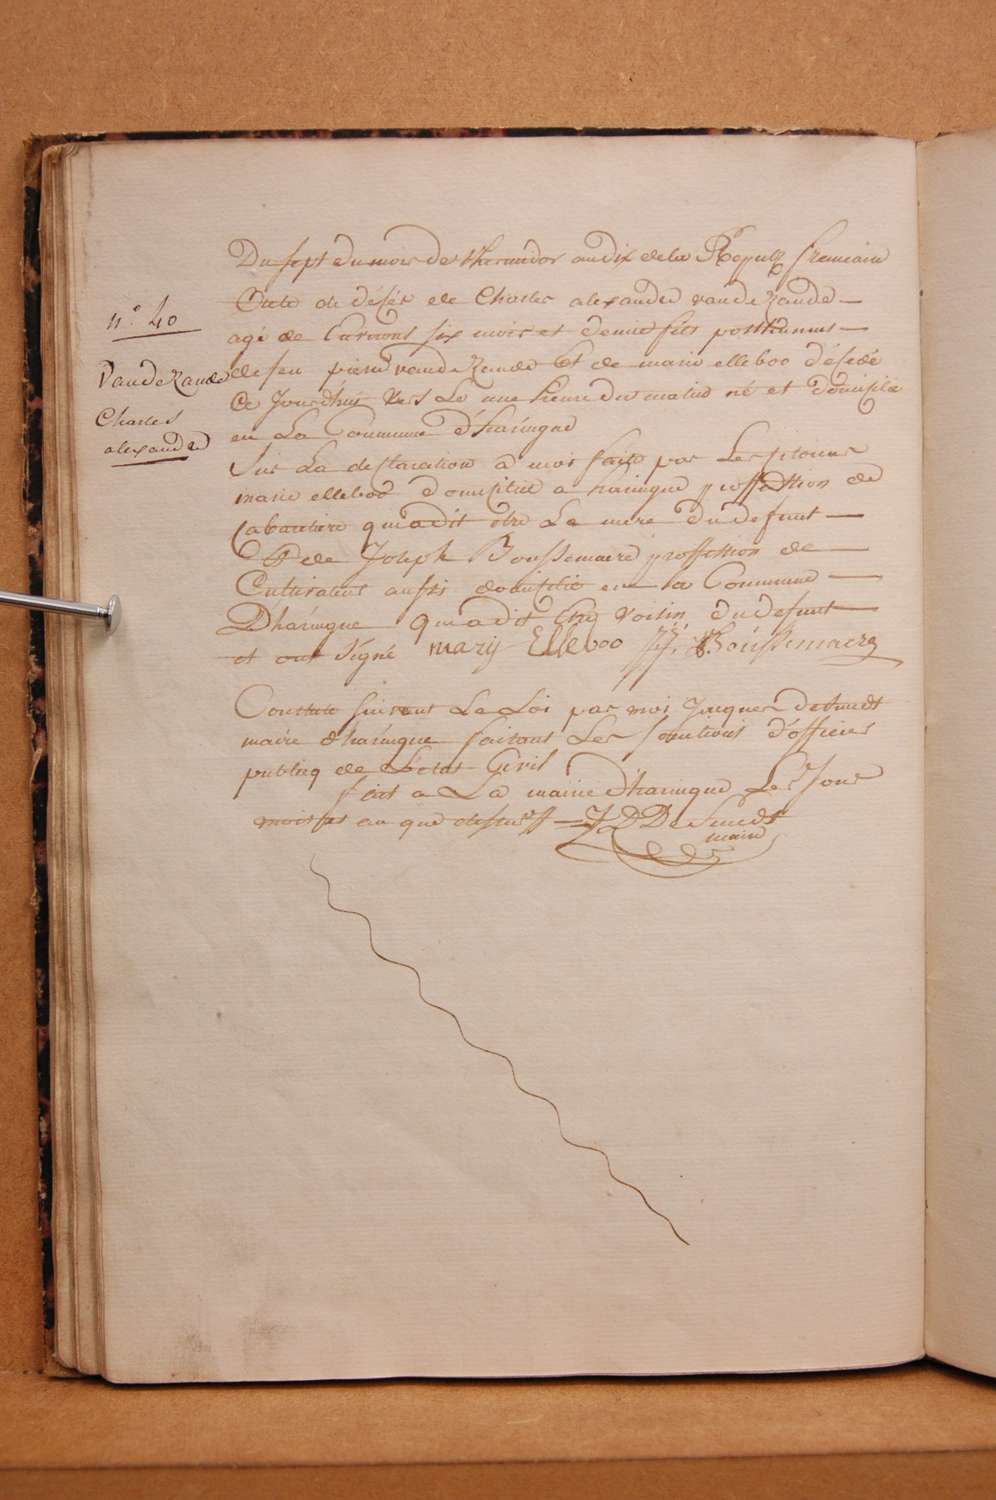 Du sept du mois de thermidor an dix de la Republ francaise
n.° 40
Acte de déses de Charles alexandre vande Zande
agé de Environs six mois et demie fils posthumus
Vande Zande
de feu pierre vande Zande Et de marie elleboo désedé
Charles
Ce Jourdhui vers Le une heure du matin né et domicilié
alexandre
en La Commune d'haringue
Sur La desclaration a moi faite par Les sitoiens
marie elleboo domicilié a haringue proffession de
Cabartiere qu'a dit etre La mere du defunt
Et de Joseph Boussemaere proffession de
Cultivateur aussi domicilié en la Commune
D'haringue qu'a dit Etre voisin du defunt
et ont signé marij Elleboo JF. Boussemaere
Constaté suivant La Loi par moi Jacques desmedt
maire d'haringue faisant Les fonctions d'officier
publicq de L'etat Civil
fait a La mairie d'haringue Les Jour
mois et an que dessus JD DeSmedt
maire